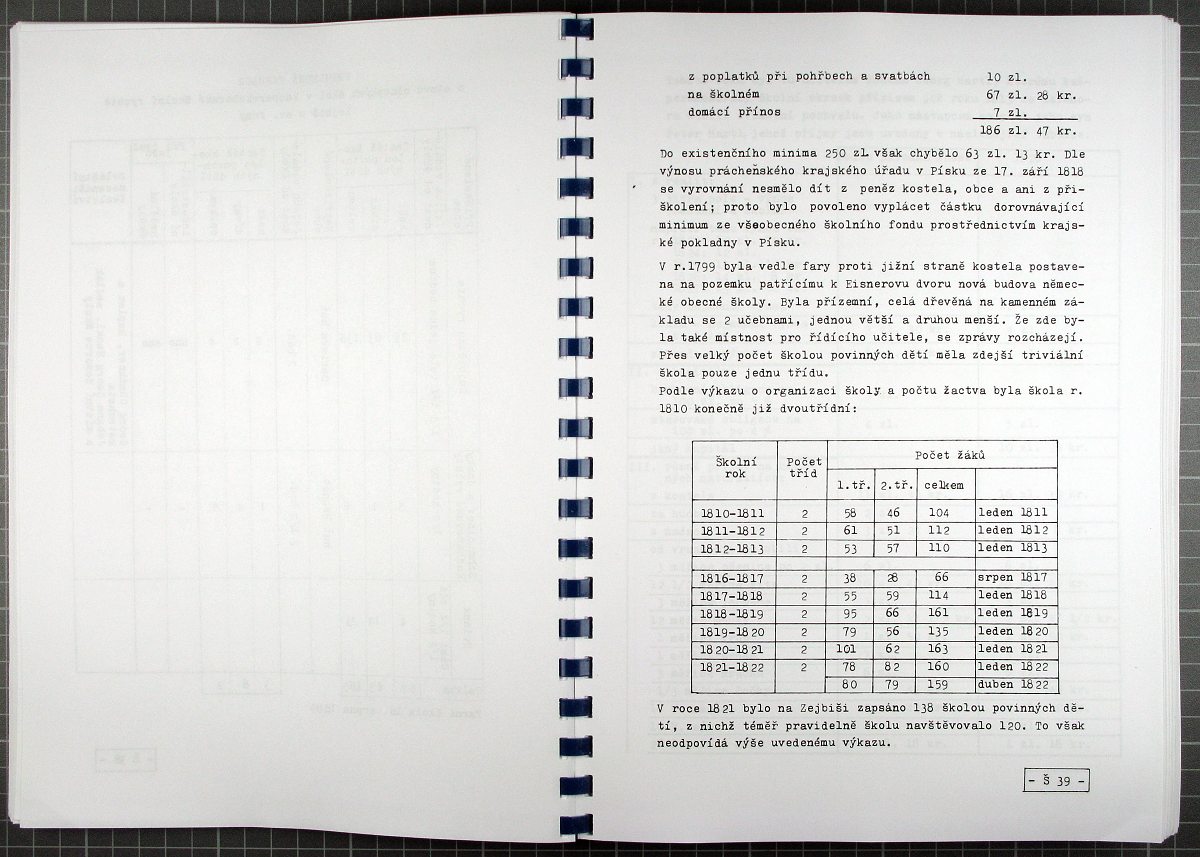 z poplatků při pohřbech a svatbách 10 zl.
na školném 67 zl. 28 kr.
domácí přínos 7 zl.
186 zl. 47 kr.
Do existenčního minima 250 zl. však chybělo 63 zl. 13 kr. Dle
výnosu prácheňského krajského úřadu v Písku ze 17. září 1818
se vyrovnání nesmělo dít z peněz kostela, obce a ani z při-
školení; proto bylo povoleno vyplácet částku dorovnávající
minimum ze všeobecného školního fondu prostřednictvím krajs-
ké pokladny v Písku.
V r.1799 byla vedle fary proti jižní straně kostela postave-
na na pozemku patřícímu k Eisnerovu dvoru nová budova němec-
ké obecné školy. Byla přízemní, celá dřevěná na kamenném zá-
kladu se 2 učebnami, jednou větší a druhou menší. Že zde by-
la také místnost pro řídícího učitele, se zprávy rozcházejí.
Přes velký počet školou povinných dětí měla zdejší triviální
škola pouze jednu třídu.
Podle výkazu o organizaci školy a počtu žactva byla škola r.
1810 konečně již dvoutřídní:
Školní rok Počet tříd Počet žáků
1.tř. 2.tř. celkem
1810-1811 2 58 46 104 leden 1811
1811-1812 2 61 51 112 leden 1812
1812-1813 2 53 57 110 leden 1813
1816-1817 2 38 28 66 srpen 1817
1817-1818 2 55 59 114 leden 1818
1818-1819 2 95 66 161 leden 1819
1819-1820 2 79 56 135 leden 1820
1820-1821 2 101 62 163 leden 1821
1821-1822 2 78 82 160 leden 1822
80 79 159 duben 1822
V roce 1821 bylo na Zejbiši zapsáno 138 školou povinných dě-
tí, z nichž téměř pravidelně školu navštěvovalo 120. To však
neodpovídá výše uvedenému výkazu.
- Š 39 -